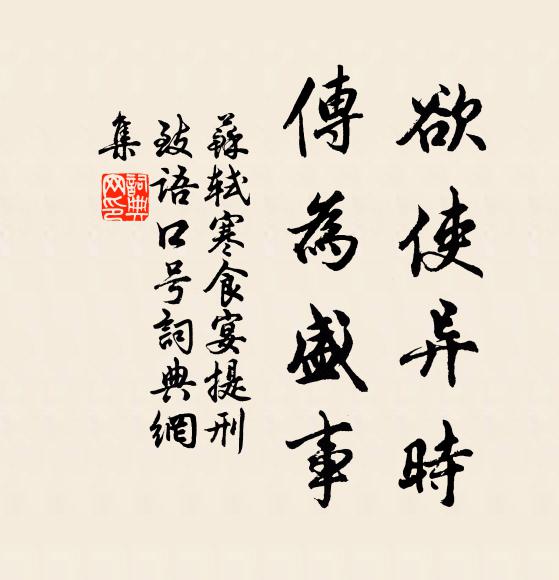 欲使异時
傳為盛事
蘇軾寒食宴提刑
致語口号詞典網
集
詞典網印